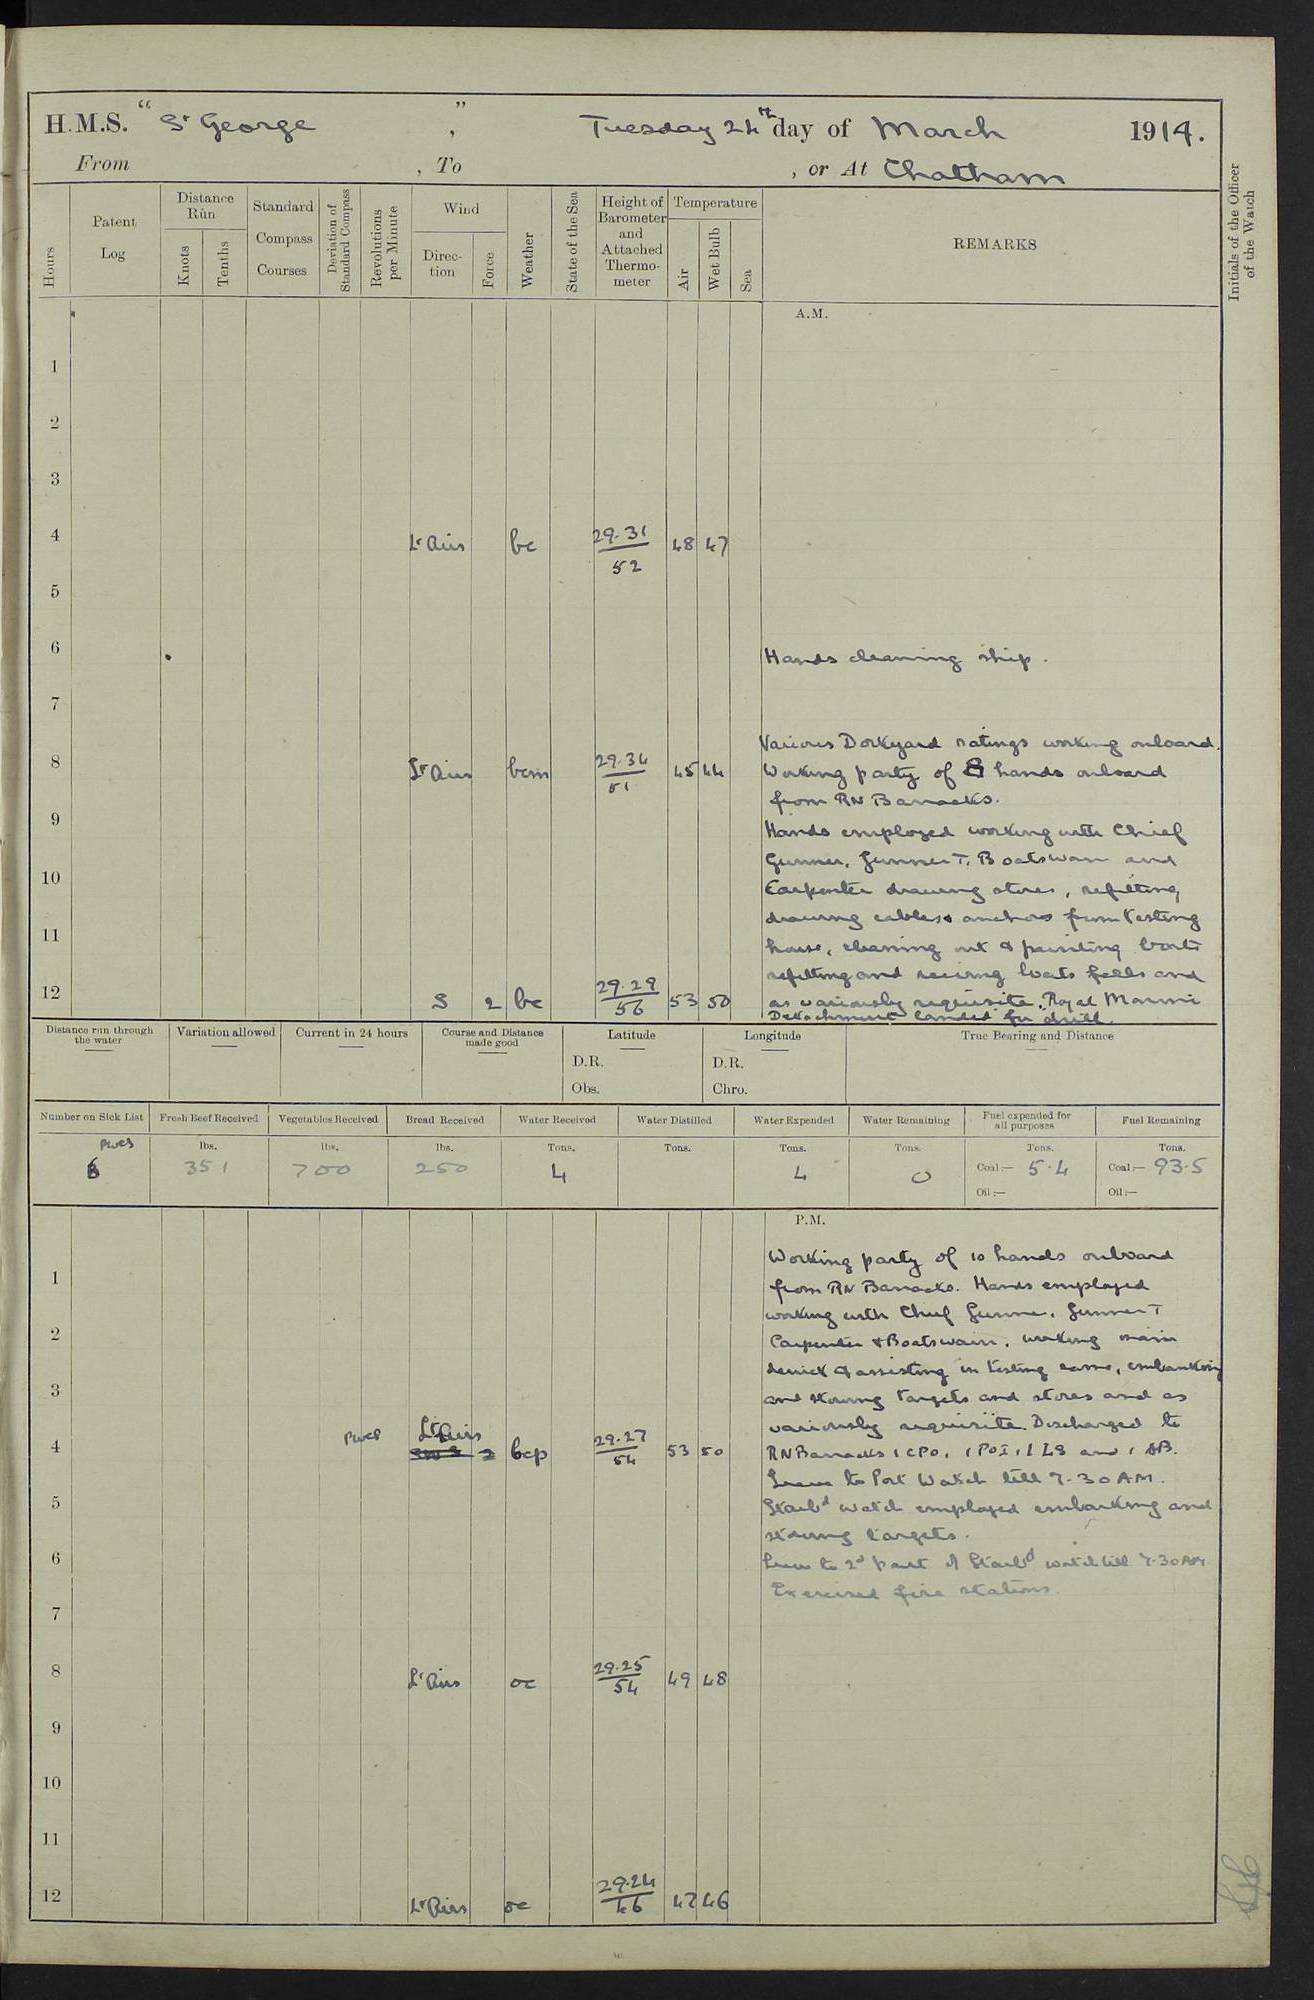 H.M.S. "St George", Tuesday 24th day of March 1914.
From , To , or At Chatham
Hours
Patent Log
Distance Run
Knots
Tenths
Standard Compass Courses
Deviation of Standard Compass
Revolutions per Minute
Wind
Direction
Force
Weather
State of the Sea
Height of Barometer and Attached Thermometer
Temperature
Air
Wet Bulb
Sea
REMARKS
Initials of the Officer of the Watch
A.M.
1
2
3
4 Lt Airs bc 29.31 52 48 47
5
6 Hands cleaning ship.
7
Various Dockyard ratings working onboard.
8 Lt Airs bcm 29.34 51 45 44 Working party of 8 hands onboard
from RN Barracks.
9 Hands employed working with Chief
Gunner, Gunner T, Boatswain and
10 Carpenter drawing stores, refitting,
drawing cables & anchors from testing
11 house, cleaning out & painting boats
refitting and reeving boats falls and
12 S 2 bc 29.29 56 53 50 as variously requisite. Royal Marine
Detachment landed for drill.
Distance run through the water
Variation allowed
Current in 24 hours
Course and Distance made good
Latitude
D.R.
Obs.
Longitude
D.R.
Chro.
True Bearing and Distance
Number on Sick List
Fresh Beef Received
Vegetables Received
Bread Received
Water Received
Water Distilled
Water Expended
Water Remaining
Fuel expended for all purposes
Fuel Remaining
lbs. lbs. lbs. Tons. Tons. Tons. Tons. Tons. Tons.
351 700 250 4 4 0 Coal:— 5.4 Coal:— 93.5
Oil:— Oil:—
P.M.
Working party of 10 hands onboard
1 from RN Barracks. Hands employed
working with Chief Gunner, Gunner T
2 Carpenter & Boatswain, working main
derrick & assisting in testing same, embarking
3 and stowing targets and stores and as
variously requisite. Discharged to
4 Lt Airs bcp 29.27 54 53 50 RN Barracks 1 CPO, 1 POI, 1 LS and 1 AB.
Leave to Port Watch till 7-30 AM.
5 Starbd watch employed embarking and
stowing targets.
6 Leave to 2d part of Starbd watch till 7-30 AM
Exercised fire stations.
7
8 Lt Airs oc 29.25 54 49 48
9
10
11
12 Lt Airs oc 29.24 46 47 46